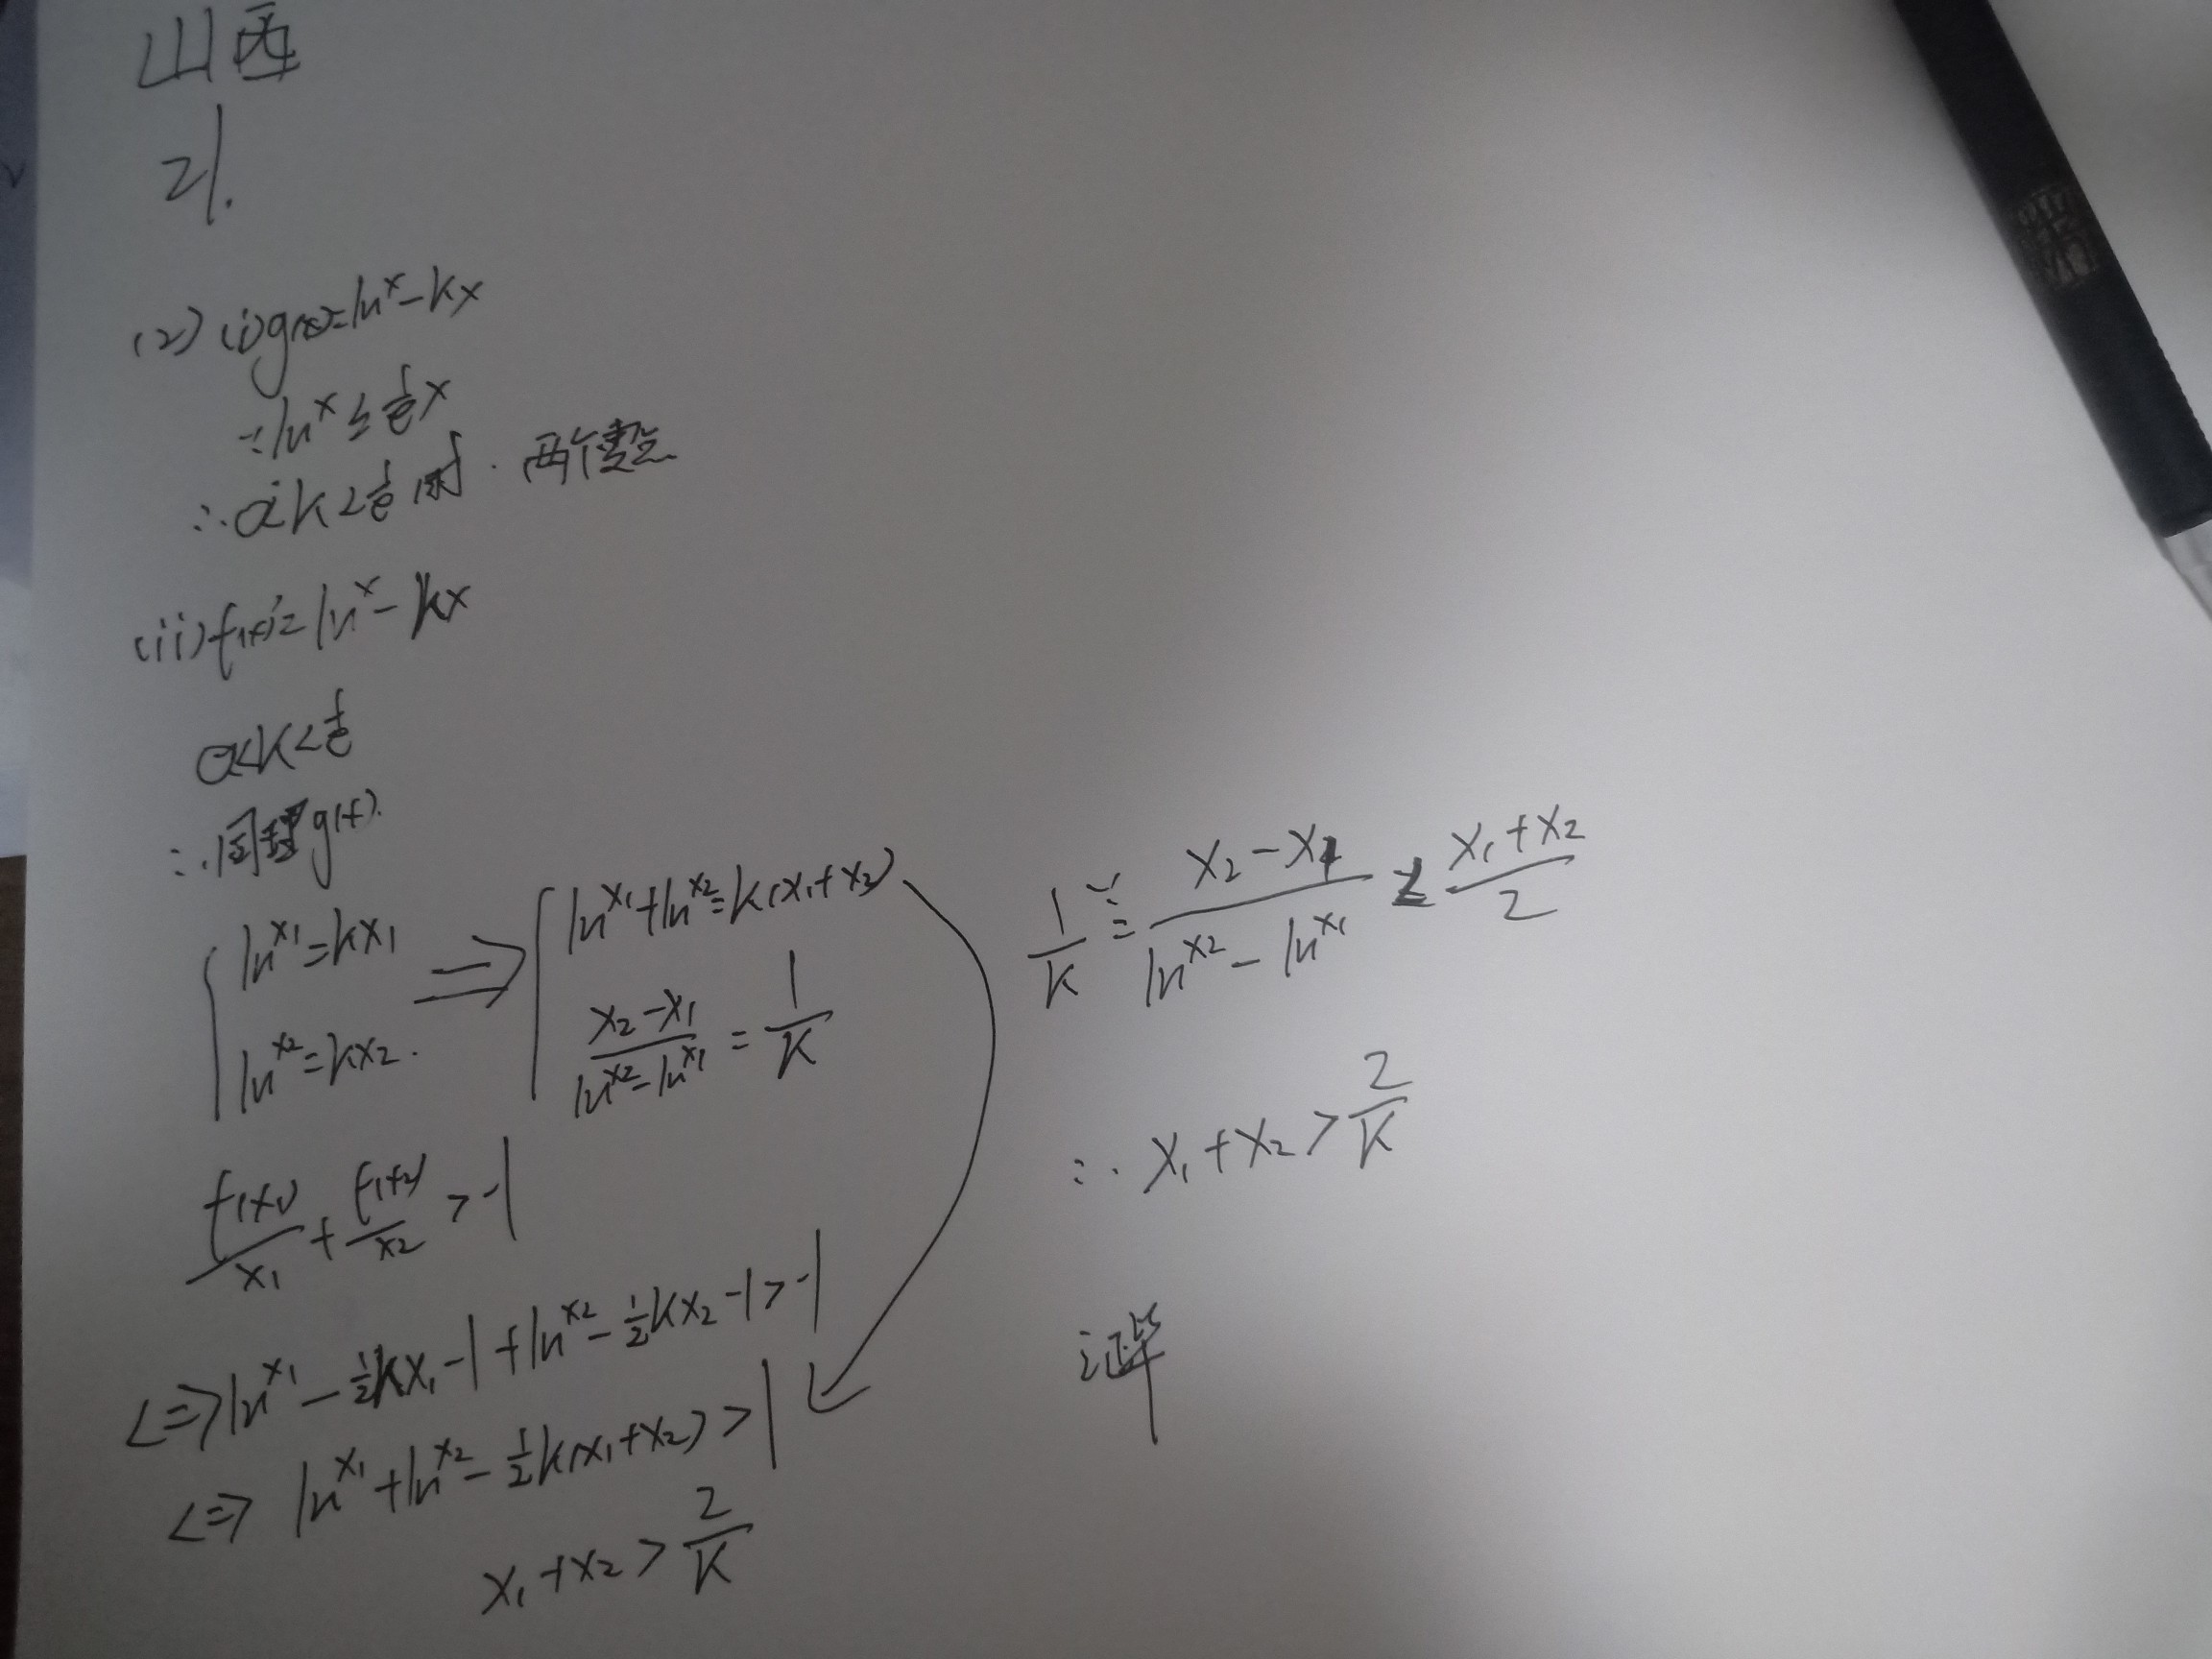 山西
21.
(2) (i) g(x)=lnx-kx
∵lnx≤1/e x
∴0<k<1/e时.两个零点
(ii) f(x)'=lnx-kx
0<k<1/e
∴同理g(x).
{ lnx₁=kx₁ lnx₂=kx₂. ⇒ { lnx₁+lnx₂=k(x₁+x₂) (x₂-x₁)/(lnx₂-lnx₁)=1/k
f(x₁)/x₁+f(x₂)/x₂>-1
<=>lnx₁-½kx₁-1+lnx₂-½kx₂-1>-1
<=> lnx₁+lnx₂-½k(x₁+x₂)>1
x₁+x₂>2/k
∵ 1/k=(x₂-x₁)/(lnx₂-lnx₁)<(x₁+x₂)/2
∴x₁+x₂>2/k
证毕